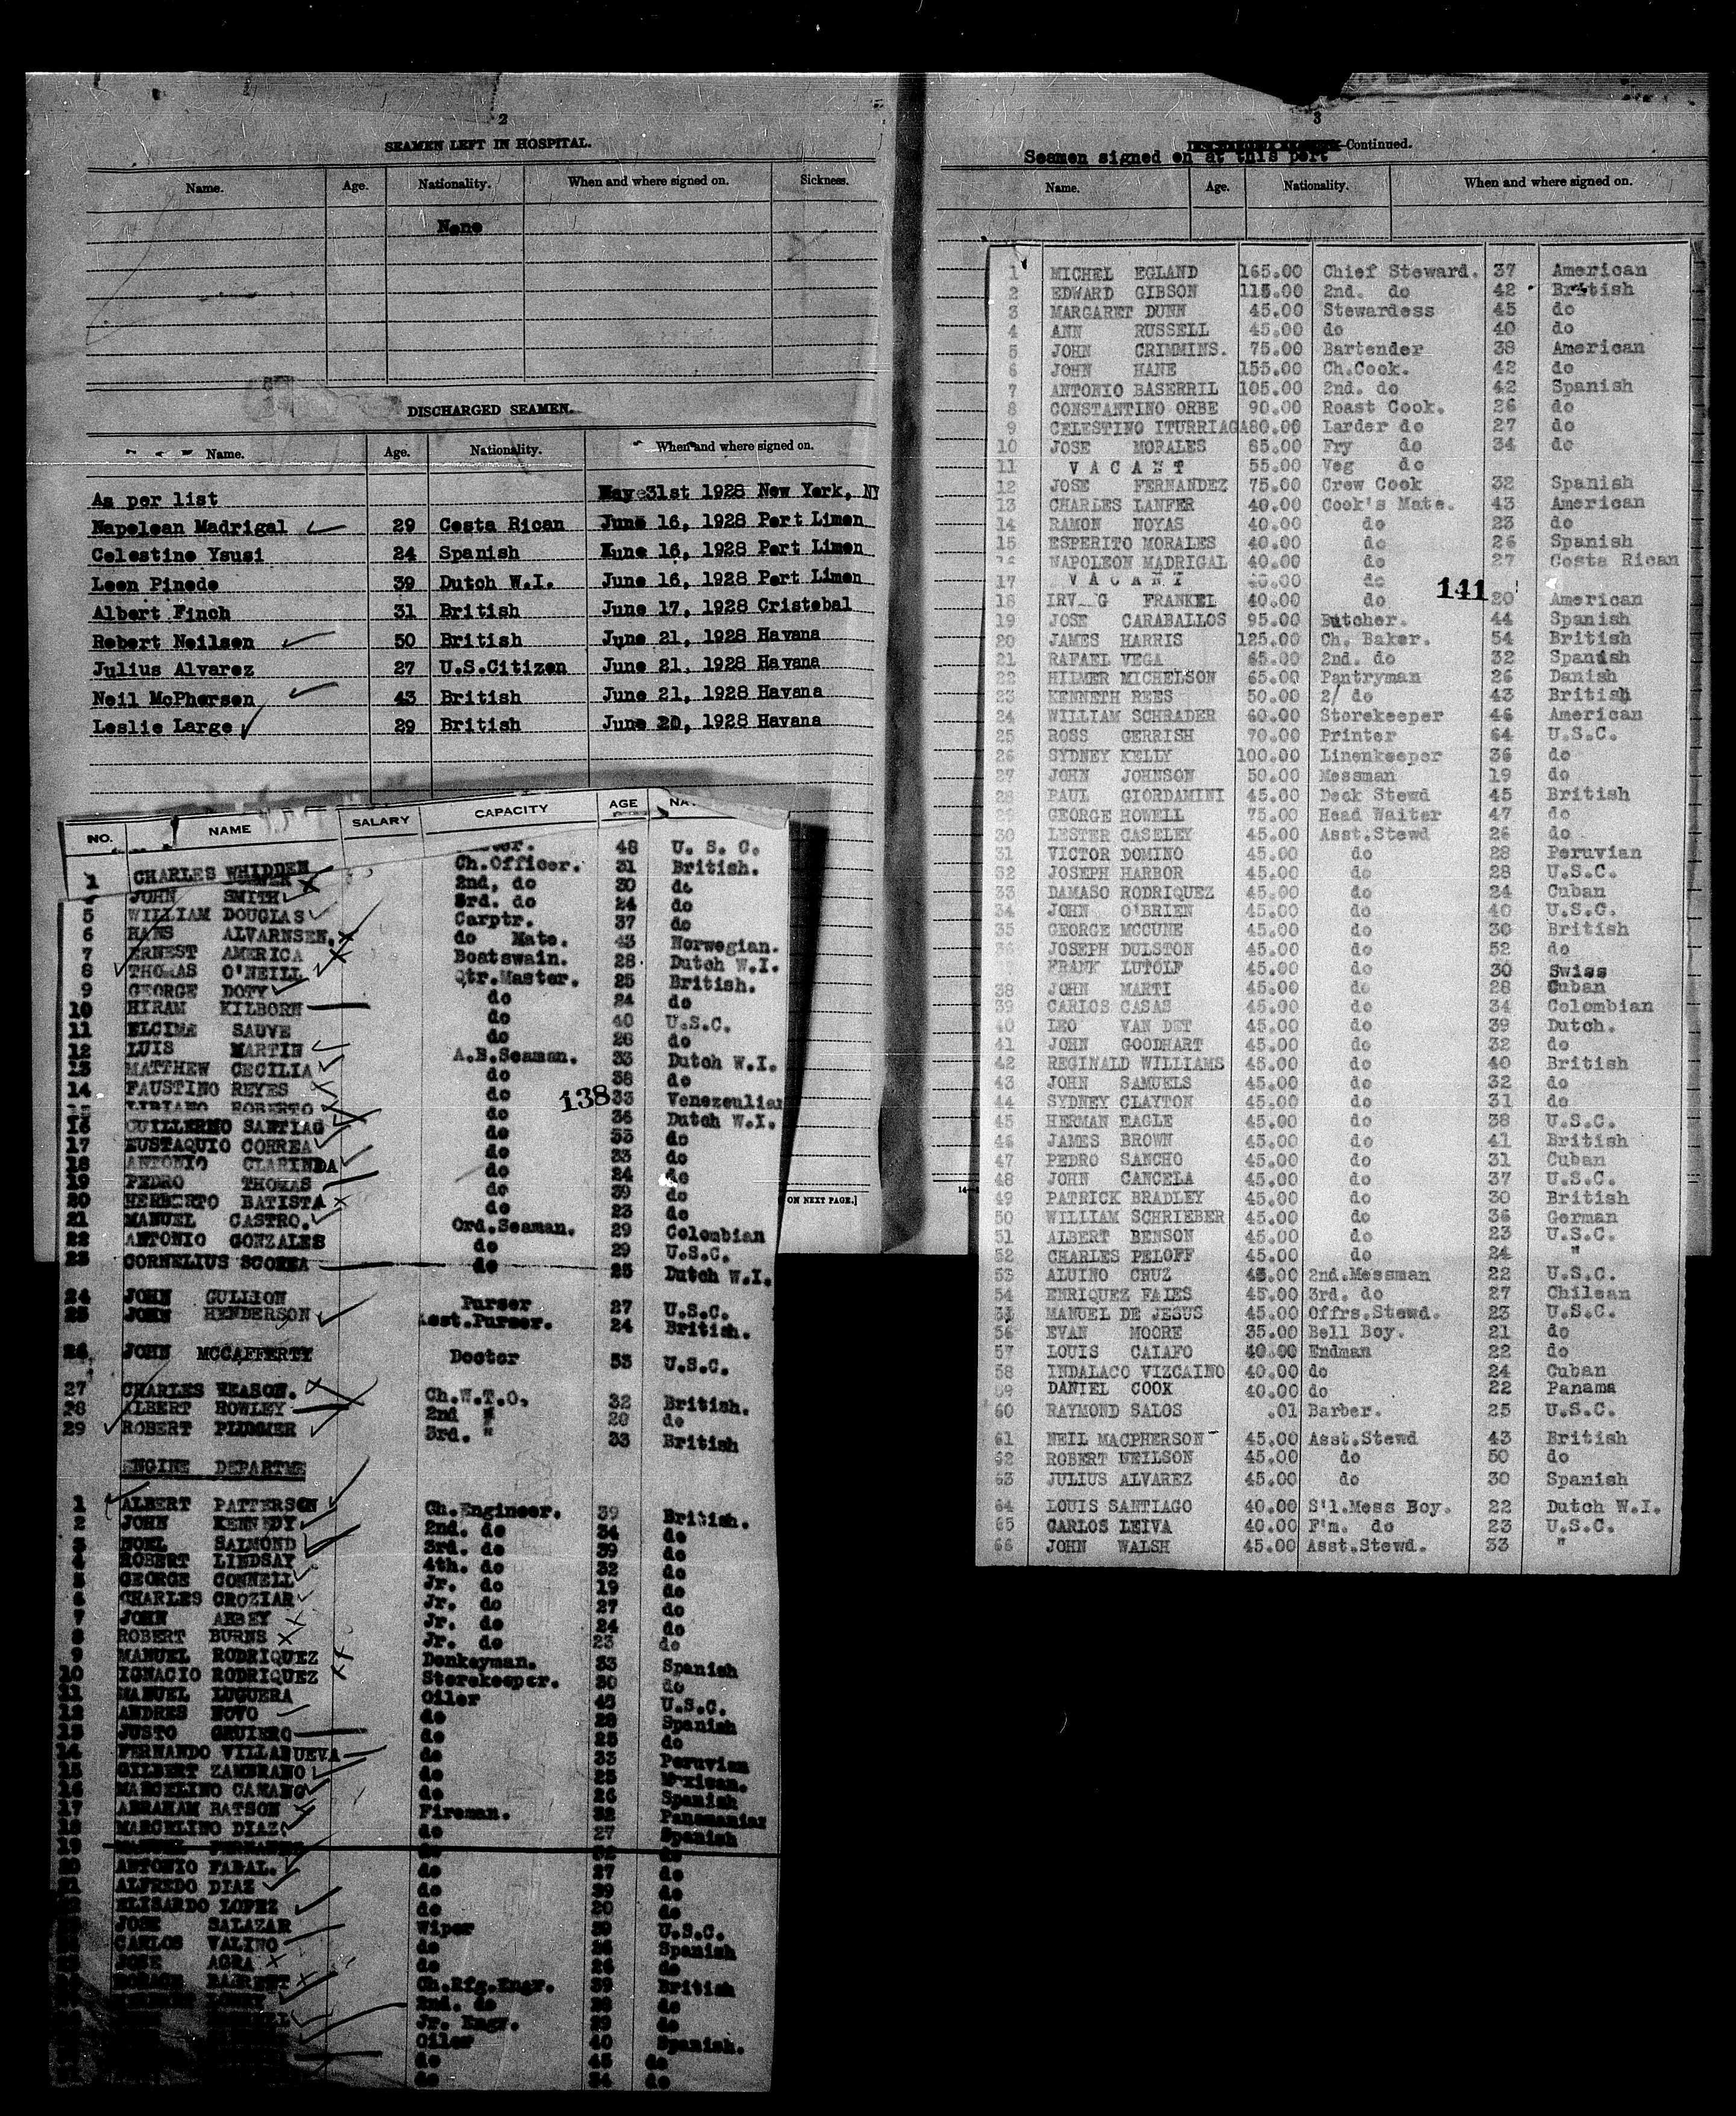 2
SEAMEN LEFT IN HOSPITAL.
Name. Age. Nationality. When and where signed on. Sickness.
None
DISCHARGED SEAMEN.
Name. Age. Nationality. When and where signed on.
As per list May 31st 1928 New York, NY
Napolean Madrigal 29 Costa Rican June 16, 1928 Port Limon
Celestino Ysusi 24 Spanish June 16, 1928 Port Limon
Leon Pinedo 39 Dutch W.I. June 16, 1928 Port Limon
Albert Finch 31 British June 17, 1928 Cristobal
Robert Neilson 50 British June 21, 1928 Havana
Julius Alvarez 27 U.S.Citizen June 21, 1928 Havana
Neil McPherson 43 British June 21, 1928 Havana
Leslie Large 29 British June 20, 1928 Havana
NO. NAME SALARY CAPACITY AGE
1 CHARLES WHIDDEN 48 U. S. C.
Ch.Officer. 31 British.
JOHN SMITH 2nd. do 30 do
5 WILLIAM DOUGLAS 3rd. do 24 do
6 HANS ALVARNSEN. Carptr. 37 do
7 ERNEST AMERICA do Mate. 43 Norwegian.
8 THOMAS O'NEILL Boatswain. 28 Dutch W.I.
9 GEORGE DOTY Qtr.Master. 25 British.
10 HIRAM KILBORN do 24 do
11 ELCIME SAUVE do 40 U.S.C.
12 LUIS MARTIN do 26 do
13 MATTHEW CECILIA A.B.Seaman. 33 Dutch W.I.
14 FAUSTINO REYES do 38 do
LIBIANO ROBERTO do 138 33 Venezeulian
16 GUILLERMO SANTIAG do 36 Dutch W.I.
17 EUSTAQUIO CORREA do 33 do
18 ANTONIO CLARINDA do 33 do
19 PEDRO THOMAS do 24 do
20 HERBERTO BATISTA do 39 do
21 MANUEL CASTRO. do 23 do
22 ANTONIO GONZALES Ord.Seaman. 29 Colombian
23 CORNELIUS SCOREA do 29 U.S.C.
do 25 Dutch W.I.
24 JOHN GULLION Purser 27 U.S.C.
25 JOHN HENDERSON Asst.Purser. 24 British.
26 JOHN MCCAFFERTY Doctor 53 U.S.C.
27 CHARLES WEASON. Ch.W.T.O. 32 British.
28 ALBERT ROWLEY 2nd " 20 do
29 ROBERT PLUMMER 3rd. " 33 British
ENGINE DEPARTME
1 ALBERT PATTERSON Ch.Engineer. 39 British.
2 JOHN KENNEDY 2nd. do 34 do
3 NOEL SALMOND 3rd. do 39 do
4 ROBERT LINDSAY 4th. do 32 do
5 GEORGE CONNELL Jr. do 19 do
6 CHARLES CROZIAR Jr. do 27 do
7 JOHN ABBEY Jr. do 24 do
8 ROBERT BURNS Jr. do 23 do
9 MANUEL RODRIQUEZ Donkeyman. 33 Spanish
10 IGNACIO RODRIQUEZ Storekeeper. 30 do
11 MANUEL LUGUERA Oiler 43 U.S.C.
12 ANDRES NOVO do 28 Spanish
13 JUSTO GRUIERO do 25 do
14 FERNANDO VILLANUEVA do 33 Peruvian
15 GILBERT ZAMBRANO do 25 Mexican.
16 MARCELINO CAMANO do 26 Spanish
17 ABRAHAM BATSON Fireman. 32 Panamanian
18 MARCELINO DIAZ do 27 Spanish
19
20 ANTONIO FABAL. do 27 do
21 ALFREDO DIAZ do 39 do
ELISARDO LOPEZ do 20 do
JOSE SALAZAR Wiper 39 U.S.C.
CARLOS VALINO do 26 Spanish
JOSE AGRA do 26 do
Ch.Rfg.Engr. 39 British
2nd. do do
Jr. Engr. 29 do
Oiler 40 Spanish.
do 45 do
do 34 do
ON NEXT PAGE.]
3
Continued.
Seamen signed on at this port
Name. Age. Nationality. When and where signed on.
1 MICHEL EGLAND 165.00 Chief Steward. 37 American
2 EDWARD GIBSON 115.00 2nd. do 42 British
3 MARGARET DUNN 45.00 Stewardess 45 do
4 ANN RUSSELL 45.00 do 40 do
5 JOHN CRIMMINS. 75.00 Bartender 38 American
6 JOHN HANE 155.00 Ch.Cook. 42 do
7 ANTONIO BASERRIL 105.00 2nd. do 42 Spanish
8 CONSTANTINO ORBE 90.00 Roast Cook. 26 do
9 CELESTINO ITURRIAGA 80.00 Larder do 27 do
10 JOSE MORALES 85.00 Fry do 34 do
11 V A C A N T 55.00 Veg do
12 JOSE FERNANDEZ 75.00 Crew Cook 32 Spanish
13 CHARLES LANFER 40.00 Cook's Mate. 43 American
14 RAMON NOYAS 40.00 do 23 do
15 ESPERITO MORALES 40.00 do 26 Spanish
NAPOLEON MADRIGAL 40.00 do 27 Costa Rican
17 V A C A N T 40.00 do 141
18 IRV G FRANKEL 40.00 do 20 American
19 JOSE CARABALLOS 95.00 Butcher. 44 Spanish
20 JAMES HARRIS 125.00 Ch. Baker. 54 British
21 RAFAEL VEGA 65.00 2nd. do 32 Spanish
22 HILMER MICHELSON 65.00 Pantryman 26 Danish
23 KENNETH REES 50.00 2/ do 43 British
24 WILLIAM SCHRADER 60.00 Storekeeper 46 American
25 ROSS GERRISH 70.00 Printer 64 U.S.C.
26 SYDNEY KELLY 100.00 Linenkeeper 36 do
27 JOHN JOHNSON 50.00 Messman 19 do
28 PAUL GIORDAMINI 45.00 Deck Stewd 45 British
29 GEORGE HOWELL 75.00 Head Waiter 47 do
30 LESTER CASELEY 45.00 Asst.Stewd 26 do
31 VICTOR DOMINO 45.00 do 28 Peruvian
32 JOSEPH HARBOR 45.00 do 28 U.S.C.
33 DAMASO RODRIQUEZ 45.00 do 24 Cuban
34 JOHN O'BRIEN 45.00 do 40 U.S.C.
35 GEORGE MCCUNE 45.00 do 30 British
36 JOSEPH DULSTON 45.00 do 52 do
FRANK LUTOLF 45.00 do 30 Swiss
38 JOHN MARTI 45.00 do 28 Cuban
39 CARLOS CASAS 45.00 do 34 Colombian
40 LEO VAN DET 45.00 do 39 Dutch.
41 JOHN GOODHART 45.00 do 32 do
42 REGINALD WILLIAMS 45.00 do 40 British
43 JOHN SAMUELS 45.00 do 32 do
44 SYDNEY CLAYTON 45.00 do 31 do
45 HERMAN EAGLE 45.00 do 38 U.S.C.
46 JAMES BROWN 45.00 do 41 British
47 PEDRO SANCHO 45.00 do 31 Cuban
48 JOHN CANCELA 45.00 do 37 U.S.C.
49 PATRICK BRADLEY 45.00 do 30 British
50 WILLIAM SCHRIEBER 45.00 do 36 German
51 ALBERT BENSON 45.00 do 23 U.S.C.
52 CHARLES PELOFF 45.00 do 24 "
53 ALUINO CRUZ 45.00 2nd.Messman 22 U.S.C.
54 ENRIQUEZ FALES 45.00 3rd. do 27 Chilean
55 MANUEL DE JESUS 45.00 Offrs.Stewd. 23 U.S.C.
56 EVAN MOORE 35.00 Bell Boy. 21 do
57 LOUIS CAIAFO 40.00 Endman 22 do
58 INDALACO VIZCAINO 40.00 do 24 Cuban
59 DANIEL COOK 40.00 do 22 Panama
60 RAYMOND SALOS .01 Barber. 25 U.S.C.
61 NEIL MACPHERSON 45.00 Asst.Stewd 43 British
62 ROBERT NEILSON 45.00 do 50 do
63 JULIUS ALVAREZ 45.00 do 30 Spanish
64 LOUIS SANTIAGO 40.00 S'l.Mess Boy. 22 Dutch W.I.
65 CARLOS LEIVA 40.00 F'm. do 23 U.S.C.
66 JOHN WALSH 45.00 Asst.Stewd. 33 "